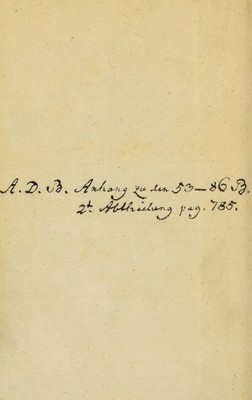 A. D. B. Anhang zu den 53–86 B.
2t Abtheilung pag. 785.